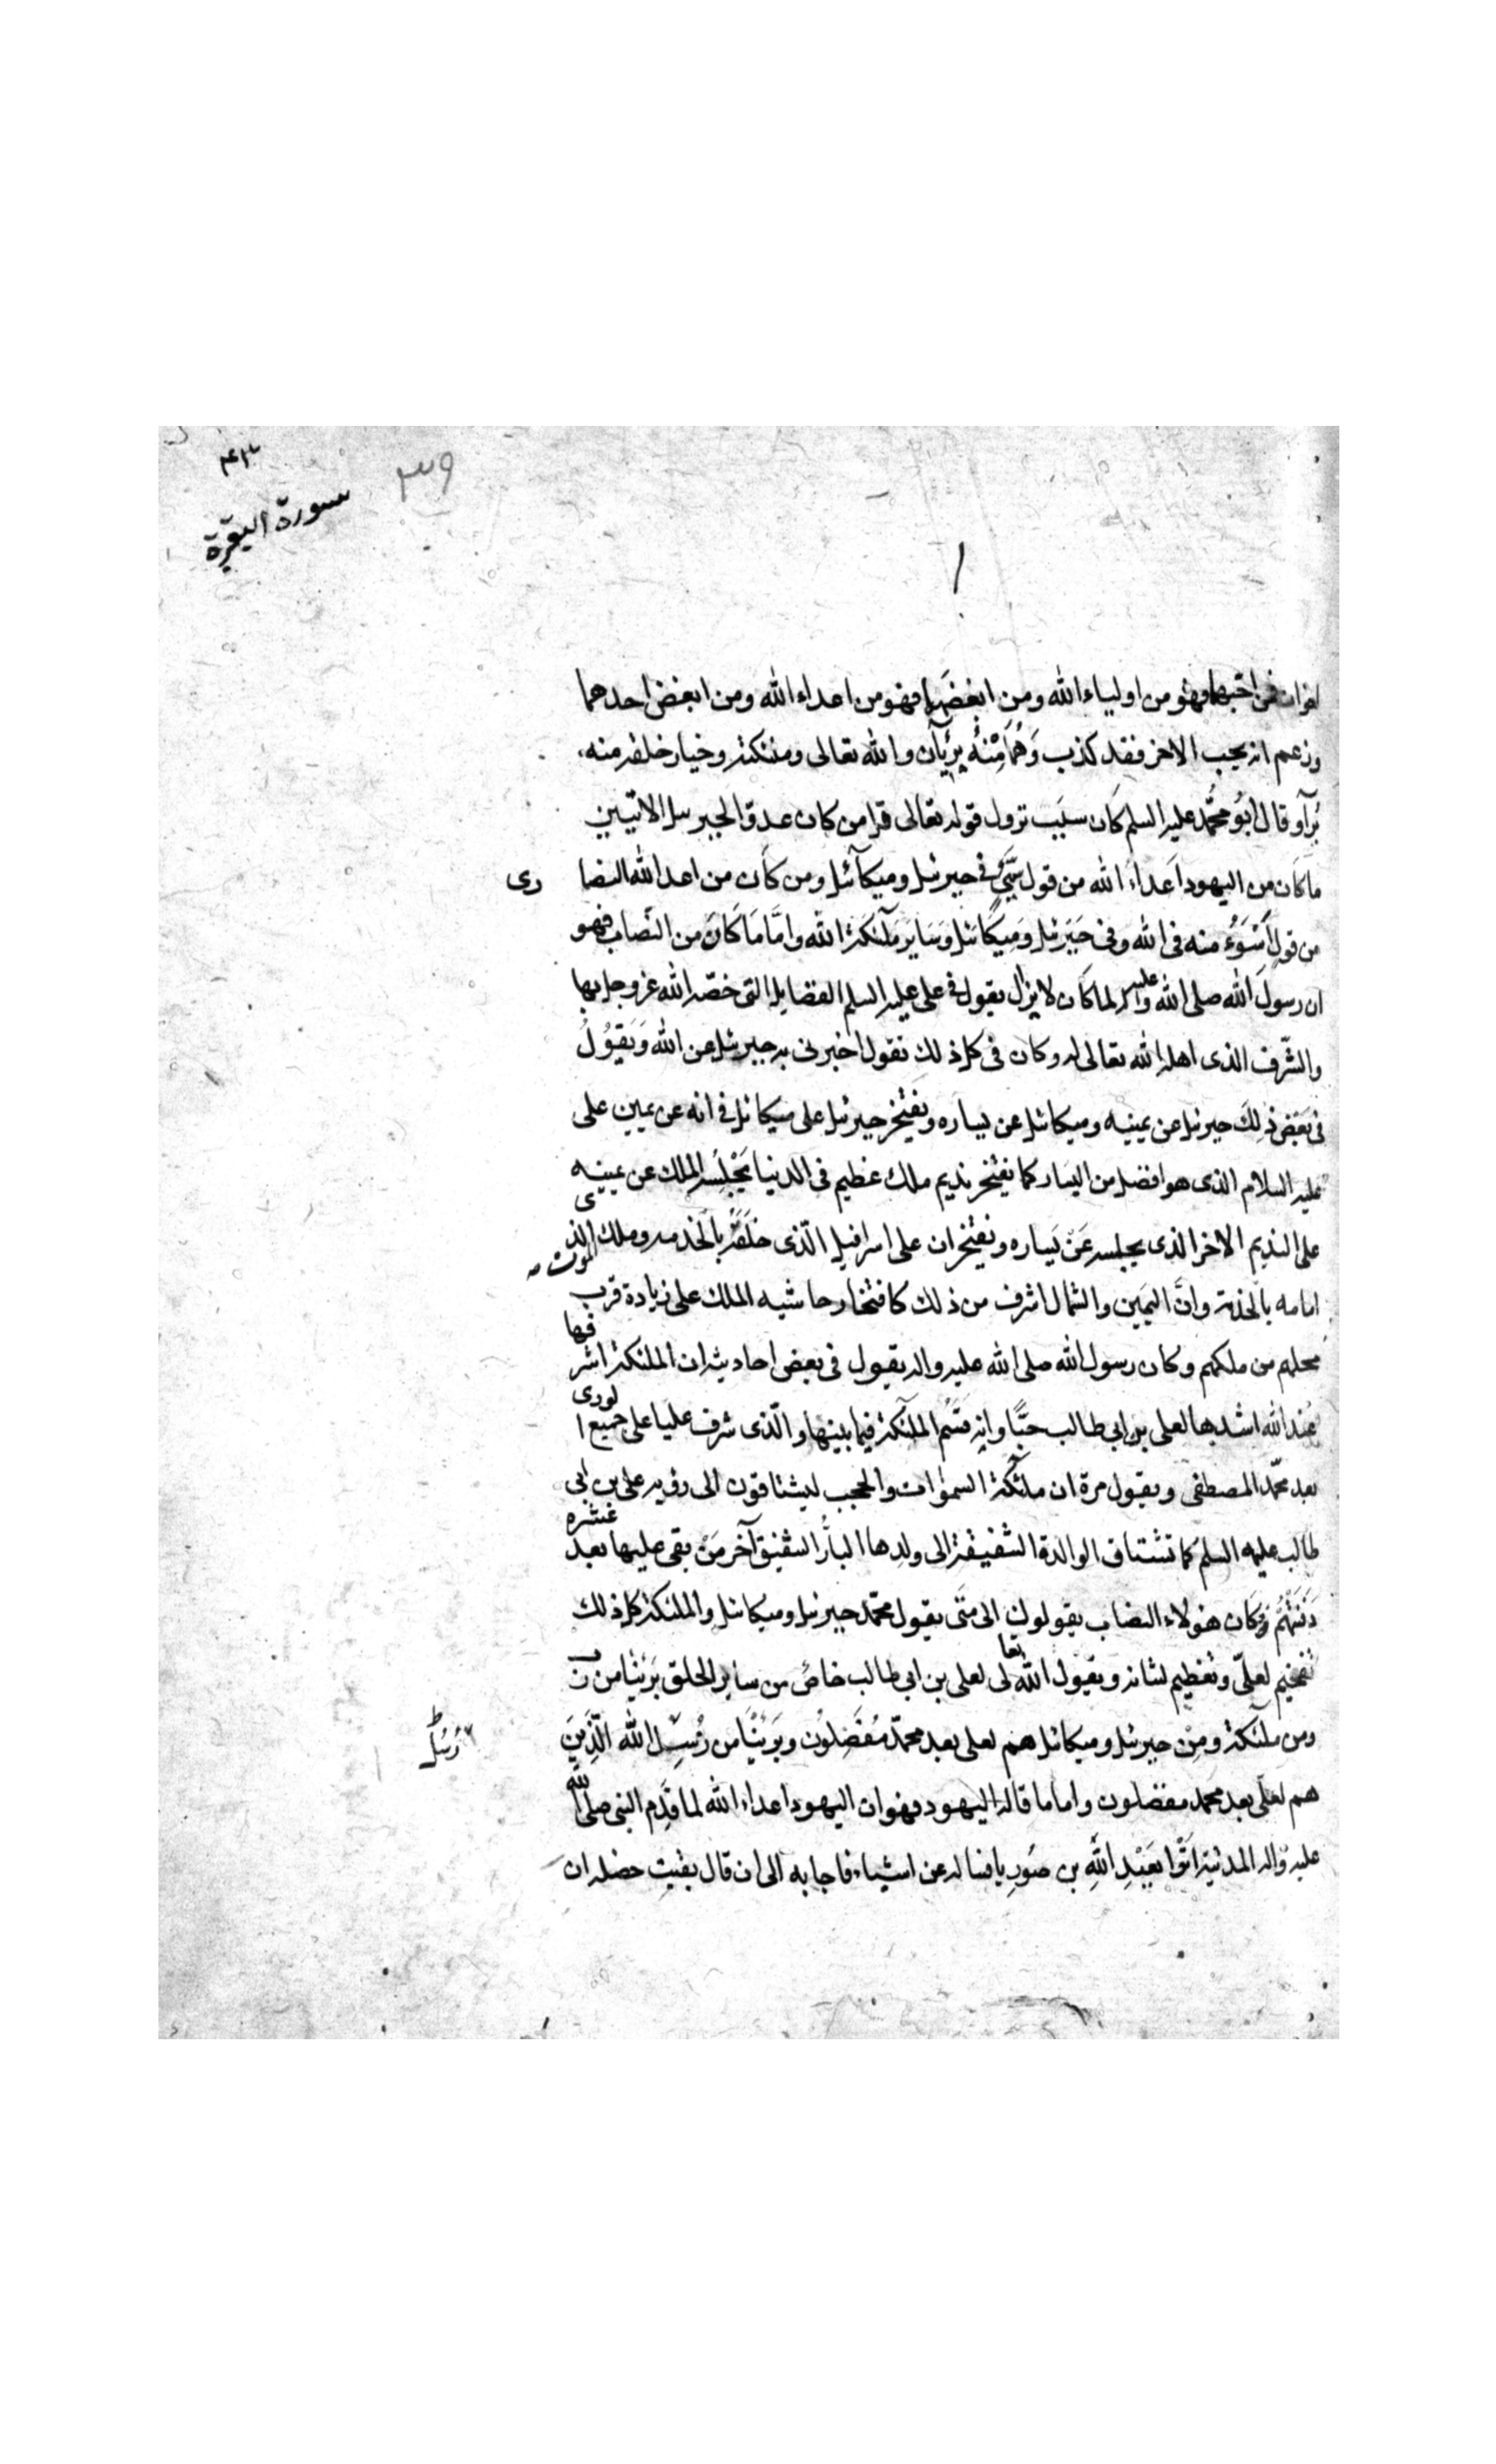 ۴۳
۳۹
سورة البقرة
اخوان فمن احبهما فهو من اولياء الله ومن ابغضهما فهو من اعداء الله ومن ابغض احدهما
وزعم انه يحب الاخر فقد كذب وَهُمَا مِنْهُ بَرِيّآن والله تعالى وملئكته وخيار خلقه منه
بُرَآؤ قال ابُو محمَّد عليه السلم كَان سبَب نزول قوله تعالى قل من كان عدوّا لجبرئيل الاتيين
ما كَان من اليهود اَعداءِ الله من قول سَيِّئ في جبرئيل وميكآئيل ومن كَان من اعدا الله النصا
من قولٍ اَسْوَءُ منه فى الله وفى جَبْرَئيل وَمِيكَائيل وَسَاير مَلَئكَة الله وامَّا مَا كَانَ من النّصاب فهو
ان رسولَ الله صلى الله عليه واله لما كَان لا يزال يقول فى على عليه السلم الفضايل التى خصّه الله عز وجل بها
والشّرف الذى اهله الله تعالى له وكان فى كل ذلك يقول اخبرنى به جبرئيل عن الله وَيَقُولُ
فى بَعَض ذلِكَ جبرئيل عن يمينه وميكائيل عن يساره ويفتخر جبرئيل على ميكائيل فى انه عن يمين على
عليه السلام الذى هو افضل من اليسار كما يفتخر نديم ملك عظيم فى الدنيا يُجْلِسُه الملك عن يمينه
على النديم الاخر الذى يجلسه عَنْ يَساره ويفتخران على اسرافيل الّذى خلفَه بالخدمه وملك الموت الذى
امامه بالخدمة وانَّ اليَمين والشمال اشرف من ذلك كافتخار حاشيه الملك على زيادة قرب
محلهم من ملكهم وكان رسول الله صلى الله عليه واله يقول فى بعض احاديثه ان الملئكة اشرفها
عند الله اشدها لعلى بن ابى طالب حبًّا وانه قسَم الملئكة فيما بينها والّذى شرف عليا على جميع الورى
بعد محمّد المصطفى ويقول مرة ان ملئكة السموات والحجب ليشتاقون الى رؤيه على بن ابى
طالب عليه السلم كما تشتاق الوالدة الشفيقة الى ولدها البارُّ الشفيق آخر مَنْ بقى عليها بعد عشره
دَفَنَتْهُمْ وكان هؤلاء النصاب يقولون الى متَى يقول محمّد جبرئيل وميكائيل والملئكة كل ذلك
تفخيم لعلىّ وتعظيم لشانه ويقول الله تعالى لعلى بن ابى طالب خاصٌ من ساير الخلق بَرِئنا من رب
ومن ملئكة ومِنْ جبرئيل وميكائيل هم لعلى بعد محمدّ مُفَضِلُون وبَرِئْنَا من رُسُلِ الله الّذِينَ
هم لعلَى بعد محمد مفضلون واما ما قاله اليهود فهو ان اليهود اعداء الله لما قَدِم النبى صلى الله
عليه وَاله المدنية اَتَوْا بعَبْدِ اللَّهِ بن صُورِيا فساله عن اشياء فاجابه الى ان قال بقيت خصله ان
رُسُل